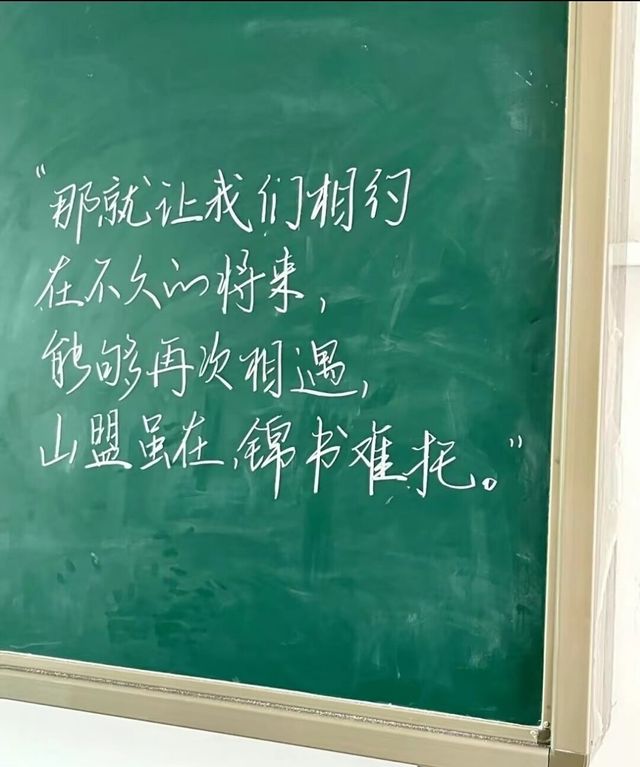 “那就让我们相约
在不久的将来，
能够再次相遇，
山盟虽在，锦书难托。”